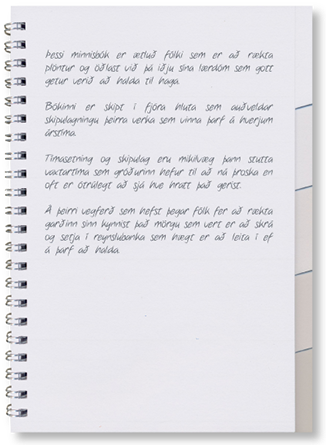 Þessi minnisbók er ætluð fólki sem er að rækta
plöntur og öðlast við þá iðju sína lærdóm sem gott
getur verið að halda til haga.
Bókinni er skipt í fjóra hluta sem auðveldar
skipulagningu þeirra verka sem vinna þarf á hverjum
árstíma.
Tímasetning og skipulag eru mikilvæg þann stutta
vaxtartíma sem gróðurinn hefur til að ná þroska en
oft er ótrúlegt að sjá hve hratt það gerist.
Á þeirri vegferð sem hefst þegar fólk fer að rækta
garðinn sinn kynnist það mörgu sem vert er að skrá
og setja í reynslubanka sem hægt er að leita í ef
á þarf að halda.